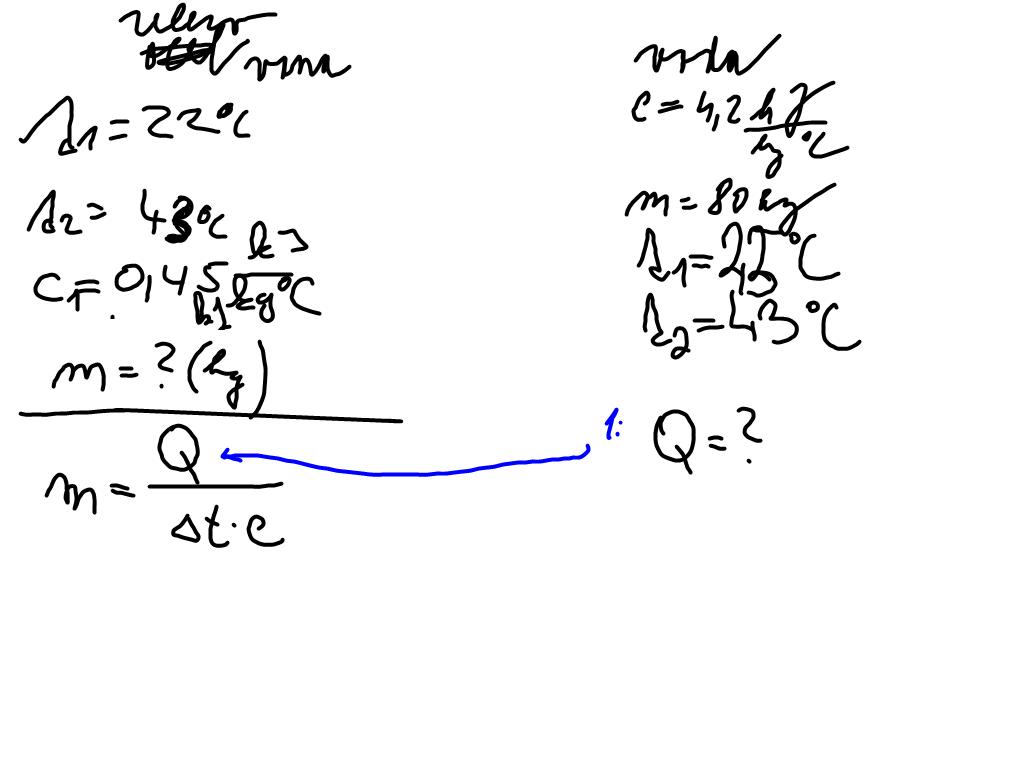 t₁ = 22°C
t₂ = 43°C
c₁ = 0,45 kJ/kg°C
m = ? (kg)
m = Q/Δt·c
voda
c = 4,2 kJ/kg°C
m = 80 kg
t₁ = 25°C
t₂ = 43°C
1: Q = ?